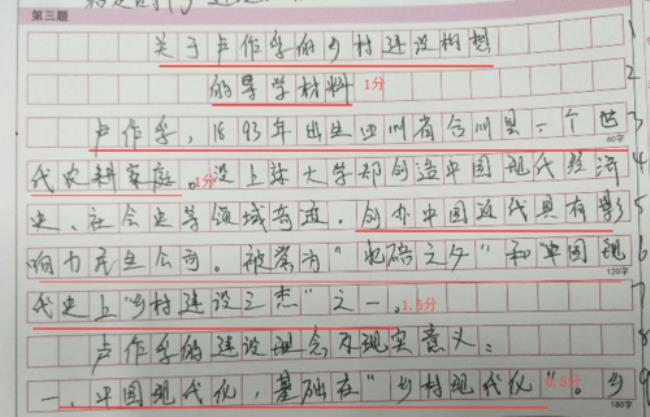 第三题
关于卢作孚的乡村建设构想
的导学材料 1分
卢作孚，1893年出生四川省合川县一个世
代农耕家庭。1分没上过大学却创造中国现代经济
史、社会史等领域奇迹，创办中国近代具有影
响力民生公司。被誉为"北碚之父"和"中国现
代史上"乡村建设三杰"之一。1.5分
卢作孚的建设理念及现实意义：
一、中国现代化，基础在"乡村现代化"。0.5分 乡
1
2
3
4
5
6
7
8
9
60字
120字
180字